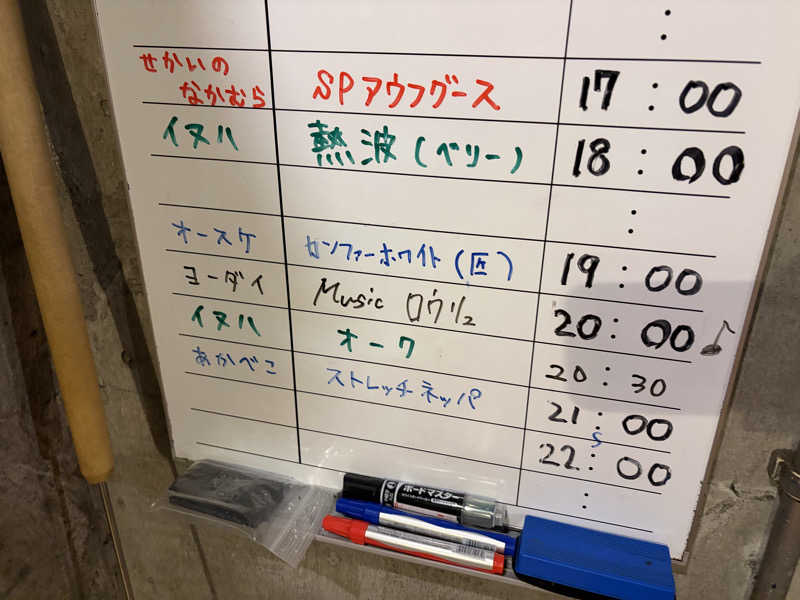 :
せかいの
なかむら SPアウフグース 17:00
イヌハ 熱波(ベリー) 18:00
:
オースケ カンファーホワイト(匠) 19:00
ヨーダイ Music ロウリュ 20:00♪
イヌハ オーク 20:30
あかべこ ストレッチネッパ 21:00
S
22:00
:
ボードマスター